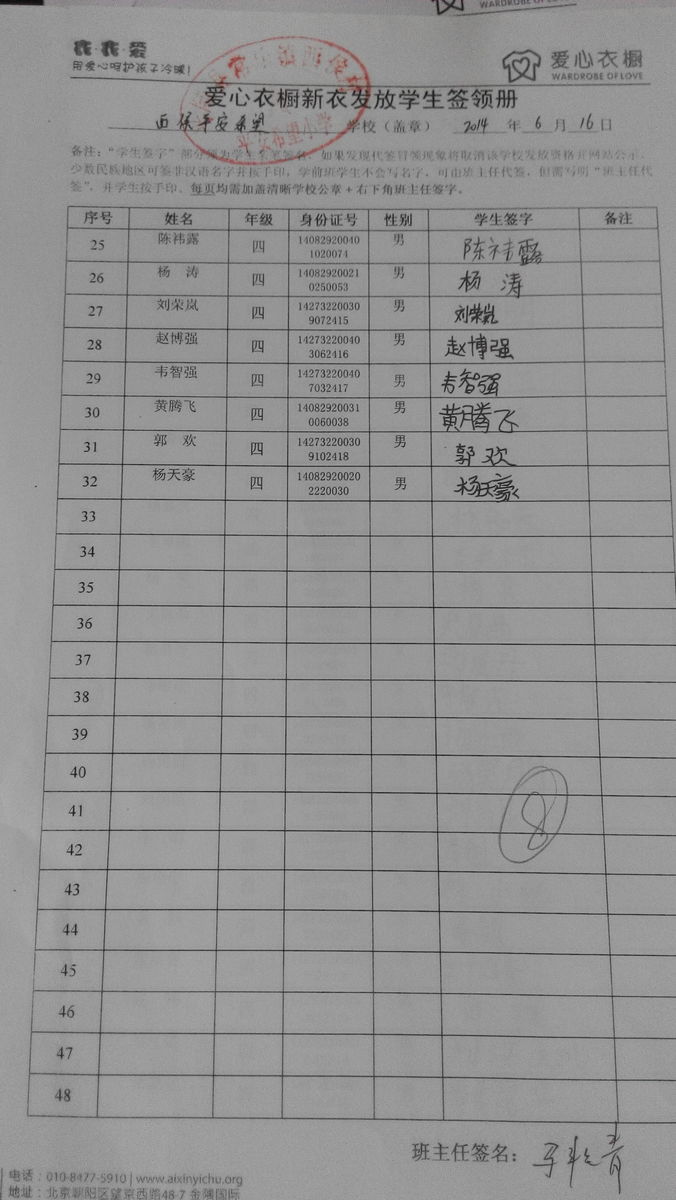 我·我·爱
用爱心呵护孩子冷暖!
爱心衣橱
WARDROBE OF LOVE
爱心衣橱新衣发放学生签领册
西保平安希望 学校（盖章） 2014 年 6 月 16 日
平安希望小学
少数民族地区可签非汉语名字并按手印，学前班学生不会写名字，可由班主任代签，但需写明“班主任代
签”，并学生按手印。每页均需加盖清晰学校公章+右下角班主任签字。
序号 姓名 年级 身份证号 性别 学生签字 备注
25 陈祎露 四 14082920040 1020074 男 陈祎露
26 杨 涛 四 14082920021 0250053 男 杨 涛
27 刘荣岚 四 14273220030 9072415 男 刘荣岚
28 赵博强 四 14273220040 3062416 男 赵博强
29 韦智强 四 14273220040 7032417 男 韦智强
30 黄腾飞 四 14082920031 0060038 男 黄腾飞
31 郭 欢 四 14273220030 9102418 男 郭 欢
32 杨天豪 四 14082920020 2220030 男 杨天豪
33
34
35
36
37
38
39
40
41
8
42
43
44
45
46
47
48
班主任签名：
电话：010-8477-5910 | www.aixinyichu.org
地址：北京朝阳区望京西路48-7 金隅国际